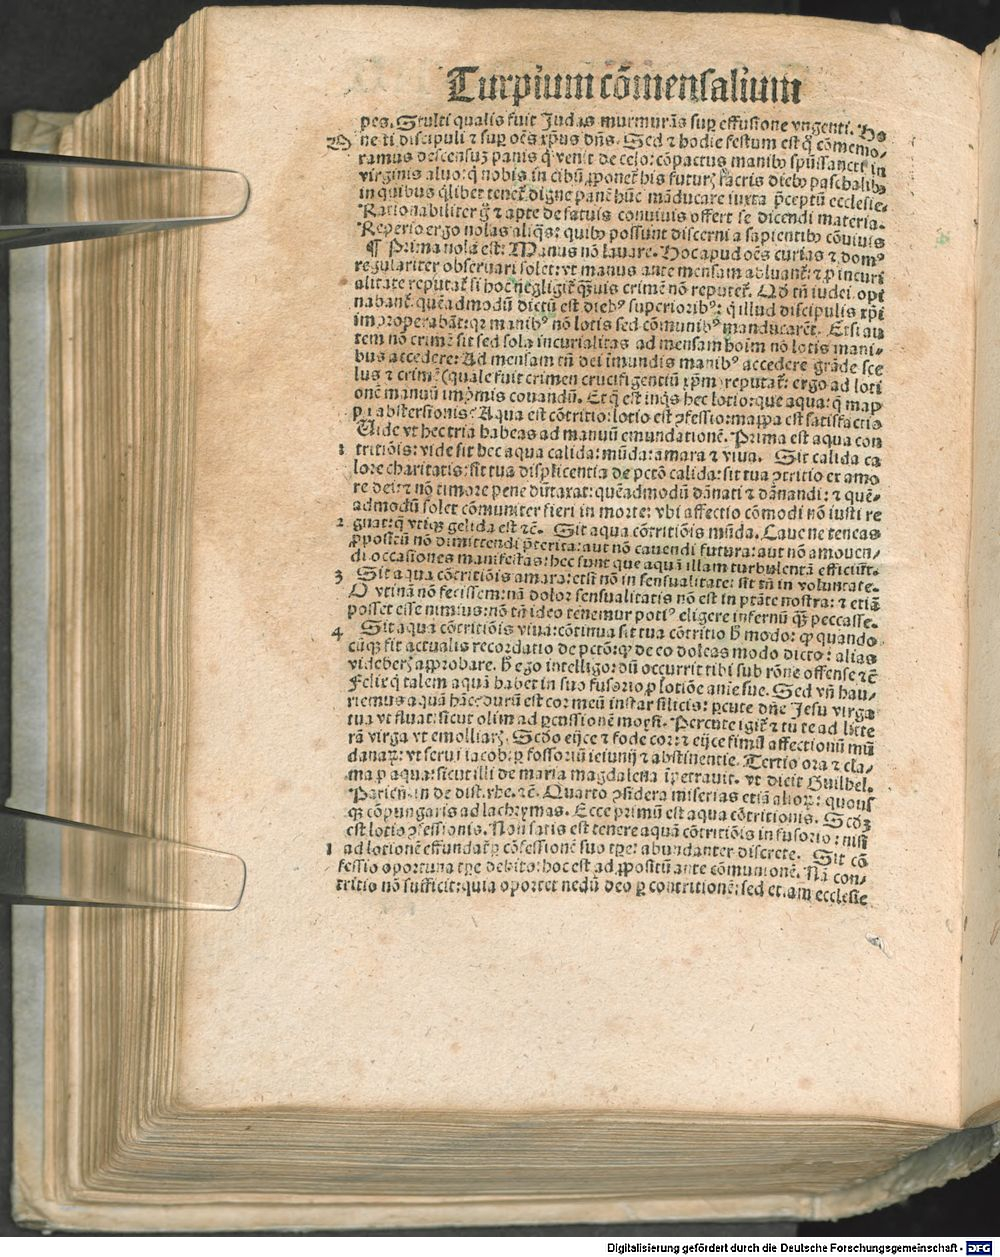 Turpium cōmensalium
pes. Stulti qualis fuit Judas murmurās sup effusione vngenti. Ho
D ne ti discipuli ⁊ sup oēs xp̄us dn̄s. Sed ⁊ hodie festum est q̄ cōmemo-
ramus descensuȝ panis q̄ venit de celo: cōpactus manibꝫ spūssancti in
virginis aluo: q̄ nobis in cibū ꝓponet᷑ his futurꝫ sacris diebꝫ paschalibꝫ
in quibus q̄libet tenet᷑ digne panē hūc māducare iuxta p̄ceptū ecclesie.
Rationabiliter g̊ ⁊ apte de fatuis conuiuis offert se dicendi materia.
Reperio ergo nolas aliq̄s: quibꝫ possunt discerni a sapientibꝫ cōuiuis
¶ Prima nola est: Manus nō lauare. Hoc apud oēs curias ⁊ domꝰ
regulariter obseruari solet: vt manus ante mensam abluant᷑: ⁊ ꝑ incuri
alitate reputat᷑ si hoc negligit᷑ q̄ȝuis crimē nō reputet᷑. Qd̄ tn̄ iudei opi
nabant᷑. quēadmodū dictū est diebꝰ superioribꝰ: q̄ illud discipulis xp̄i
improperabāt: qꝛ manibꝰ nō lotis sed cōmunibꝰ manducarēt. Etsi au
tem nō crimē sit sed sola incurialitas ad mensam hoīm nō lotis mani-
bus accedere: Ad mensam tn̄ dei īmundis manibꝰ accedere grāde sce
lus ⁊ crimē (quale fuit crimen crucifigentiū xp̄m) reputat᷑: ergo ad loti
onē manuū imp̄mis conandū. Et q̄ est inq̄s hec lotio: que aqua: q̄ map
pa abstersionis? Aqua est cōtritio: lotio est ꝯfessio: mappa est satisfactio
Uide vt hec tria habeas ad manuū emundationē. Prima est aqua con
1 tritiōis: vide sit hec aqua calida: mūda: amara ⁊ viua. Sit calida ca
lore charitatis: sit tua displicentia de pctō calida: sit tua ꝯtritio ex amo
re dei: ⁊ nō timore pene dūtaxat: quēadmodū dānati ⁊ dānandi: ⁊ quē-
admodū solet cōmuniter fieri in morte: vbi affectio cōmodi nō iusti re
2 gnat: q̄ vtiqꝫ gelida est ⁊c̄. Sit aqua cōtritiōis mūda. Caue ne teneas
ꝓpositū nō dimittendi p̄terita: aut nō cauendi futura: aut nō amouen-
di occasiones manifestas: hec sunt que aquā illam turbulentā efficiūt.
3 Sit aqua cōtritiōis amara: etsi nō in sensualitate: sit tn̄ in voluntate.
O vtinā nō fecissem: nā dolor sensualitatis nō est in ptāte nostra: ⁊ etiā
posset esse nimius: nō tn̄ ideo tenemur potiꝰ eligere infernū q̄ȝ peccasse.
4 Sit aqua cōtritiōis viua: cōtinua sit tua cōtritio h̄ modo: ꝙ quando
cūqꝫ fit actualis recordatio de pctō: ꝙ de eo doleas modo dicto: alias
videberꝫ approbare. h̄ ego intelligo: dū occurrit tibi sub rōne offense ⁊c̄
Felix q̄ talem aquā habet in suo fusorio ꝓ lotiōe anīe sue. Sed vn̄ hau-
riemus aquā hāc: durū est cor meū instar silicis: ꝑcute dn̄e Jesu virga
tua vt fluat: sicut olim ad ꝑcussionē moysi. Percute igit᷑ ⁊ tu te ad litte
rā virga vt emolliarꝫ. Scd̄o eijce ⁊ fode cor: ⁊ eijce fimū affectionū mū
danaꝝ: vt serui iacob: ꝑ fossoriū ieiunij ⁊ abstinentie. Tertio ora ⁊ cla-
ma ꝓ aqua: sicut illi de maria magdalena īpetrauit. vt dicit Guilhel.
Parien̄. in de dist. rhe. ⁊c̄. Quarto ꝯsidera miserias etiā alioꝝ: quous
qꝫ cōpungaris ad lachrymas. Ecce primū est aqua cōtritionis. Scd̄ȝ
est lotio ꝯfessionis. Non satis est tenere aquā cōtritiōis in fusorio: nisi
1 ad lotionē effundat᷑ ꝑ cōfessionē suo tp̄e: abundanter discrete. Sit cō
fessio oportuna tp̄e debito: hoc est ad ꝓpositū ante cōmunionē. Nā con-
tritio nō sufficit: quia oportet nedū deo ꝑ contritionē: sed etiam ecclesie
Digitalisierung gefördert durch die Deutsche Forschungsgemeinschaft - DFG